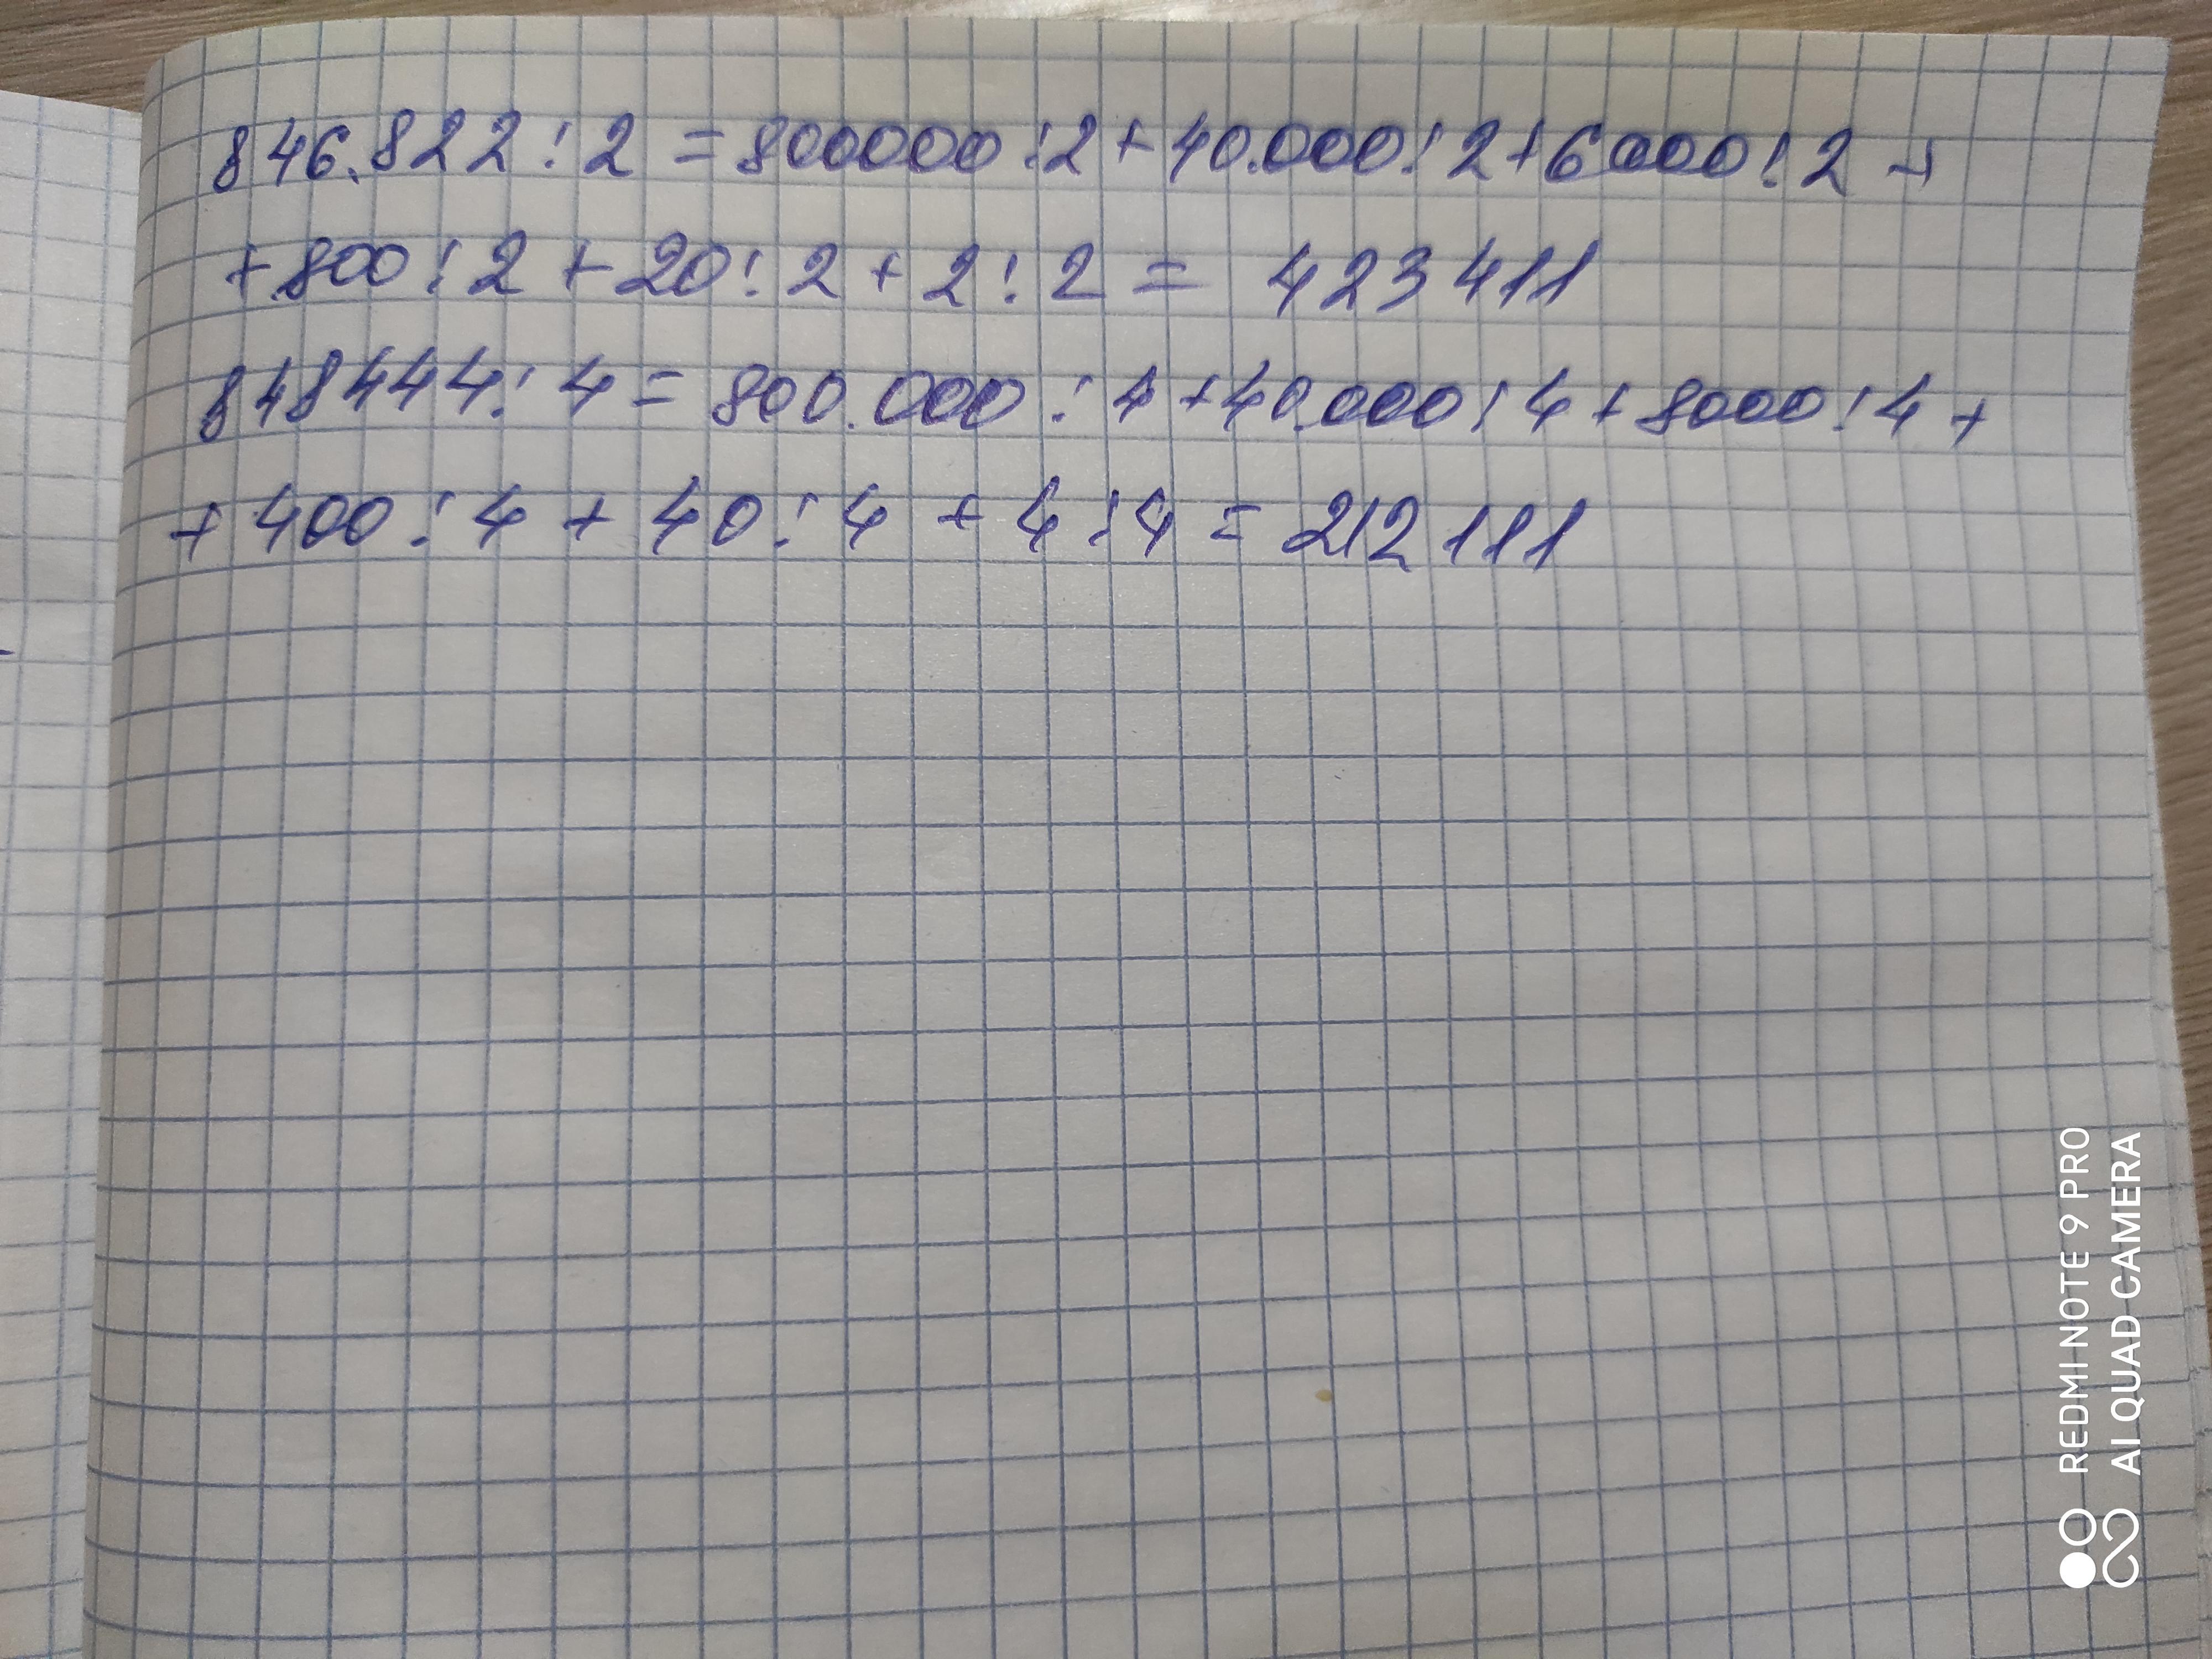 846.822 : 2 = 800000 : 2 + 40.000 : 2 + 6000 : 2 +
+ 800 : 2 + 20 : 2 + 2 : 2 = 423411
848444 : 4 = 800.000 : 4 + 40.000 : 4 + 8000 : 4 +
+ 400 : 4 + 40 : 4 + 4 : 4 = 212111
REDMI NOTE 9 PRO
AI QUAD CAMERA